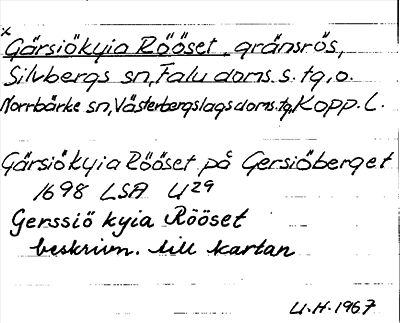 x
Gärsiökyia Rööset, gränsrös,
Silvbergs sn, Falu doms. s. tg, o.
Norrbärke sn, Västerbergslags doms. tg, Kopp. L.
Gärsiökyia Rööset på Gersiöberget
1698 LSA U29
Gerssiö kyia Rööset
beskrivn. till kartan
U.H. 1967